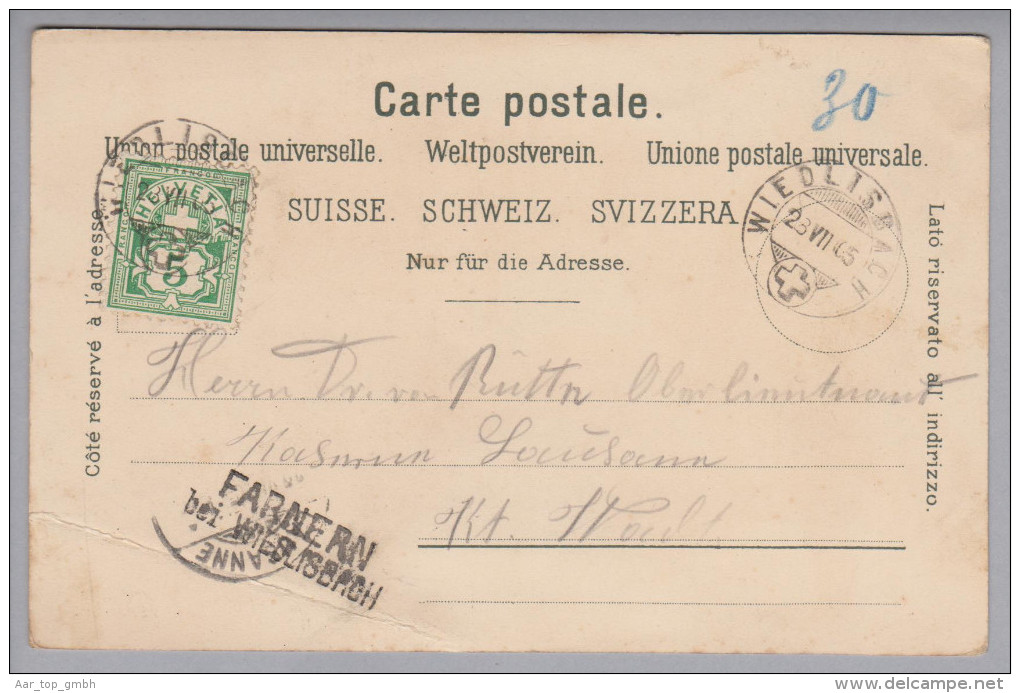 30
Carte postale.
Union postale universelle. Weltpostverein. Unione postale universale.
SUISSE. SCHWEIZ. SVIZZERA.
Nur für die Adresse.
Côté réservé à l'adresse.
Lató riservato all' indirizzo.
FRANCO
HELVETIA
FRANCO
FRANCO
5
WIEDLISBACH
WIEDLISBACH
23 VII 05
Herrn Dr. von Rütte Oberlieutnant
Kaserne Lausanne
Kt. Wadt
FARNERN
bei WIEDLISBACH
ANNE
Aar_top_gmbh
www.delcampe.net